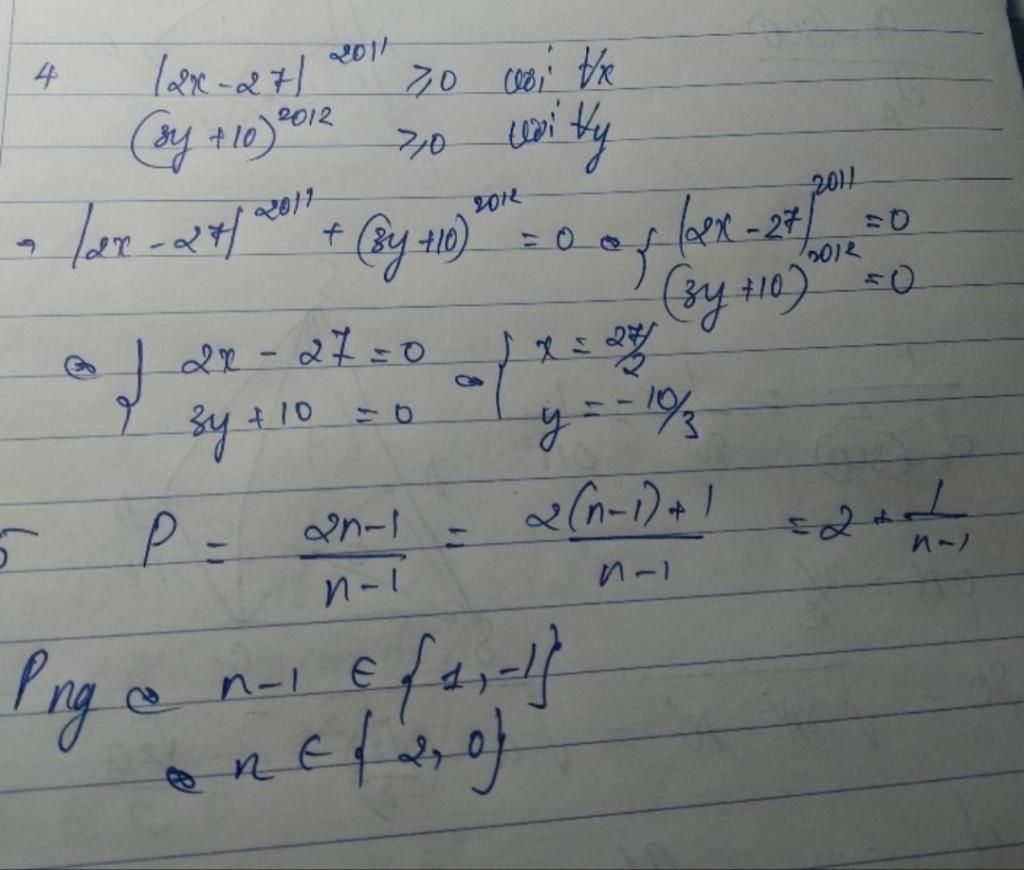 4 |2x - 27|^2011 ≥ 0 với ∀x
(3y + 10)^2012 ≥ 0 với ∀y
→ |2x - 27|^2011 + (3y + 10)^2012 = 0 ⇔ { |2x - 27|^2011 = 0
(3y + 10)^2012 = 0
⇔ { 2x - 27 = 0 ⇔ { x = 27/2
3y + 10 = 0 y = -10/3
5 P = (2n-1)/(n-1) = (2(n-1)+1)/(n-1) = 2 + 1/(n-1)
P ng ⇔ n-1 ∈ {1, -1}
⇔ n ∈ {2, 0}